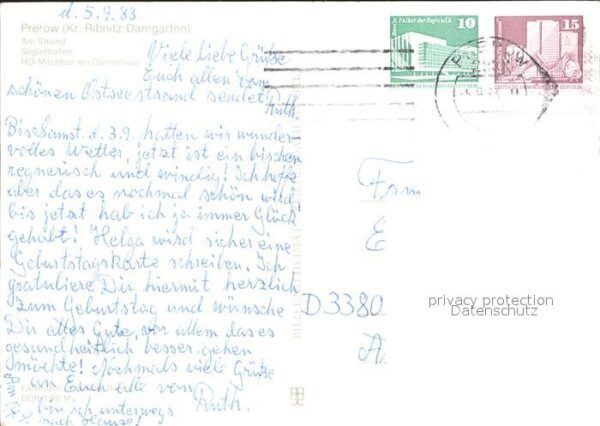 d. 5.9.83.
Prerow (Kr. Ribnitz-Damgarten)
Am Strand
Seglerhafen
HO-Milchbar am Dünenhaus
Viele liebe Grüße
Euch allen vom
schönen Ostseestrand sendet
Ruth.
Bis Samst. d. 3.9. hatten wir wunder-
volles Wetter, jetzt ist ein bischen
regnerisch und windig! Ich hoffe
aber das es nochmal schön wird
bis jetzt hab ich ja immer Glück
gehabt! Helga wird sicher eine
Geburtstagskarte schreiben. Ich
gratuliere Dir hiermit herzlich
zum Geburtstag und wünsche
Dir alles Gute, vor allem das es
gesundheitlich besser gehen
möchte! Nochmals viele Grüße
an Euch alle von
Ruth.
Am
bin ich unterwegs
nach Hause!
Berlin, Palast der Republik
10
15
PREROW
Fam
E
D 3380
A.
privacy protection
Datenschutz